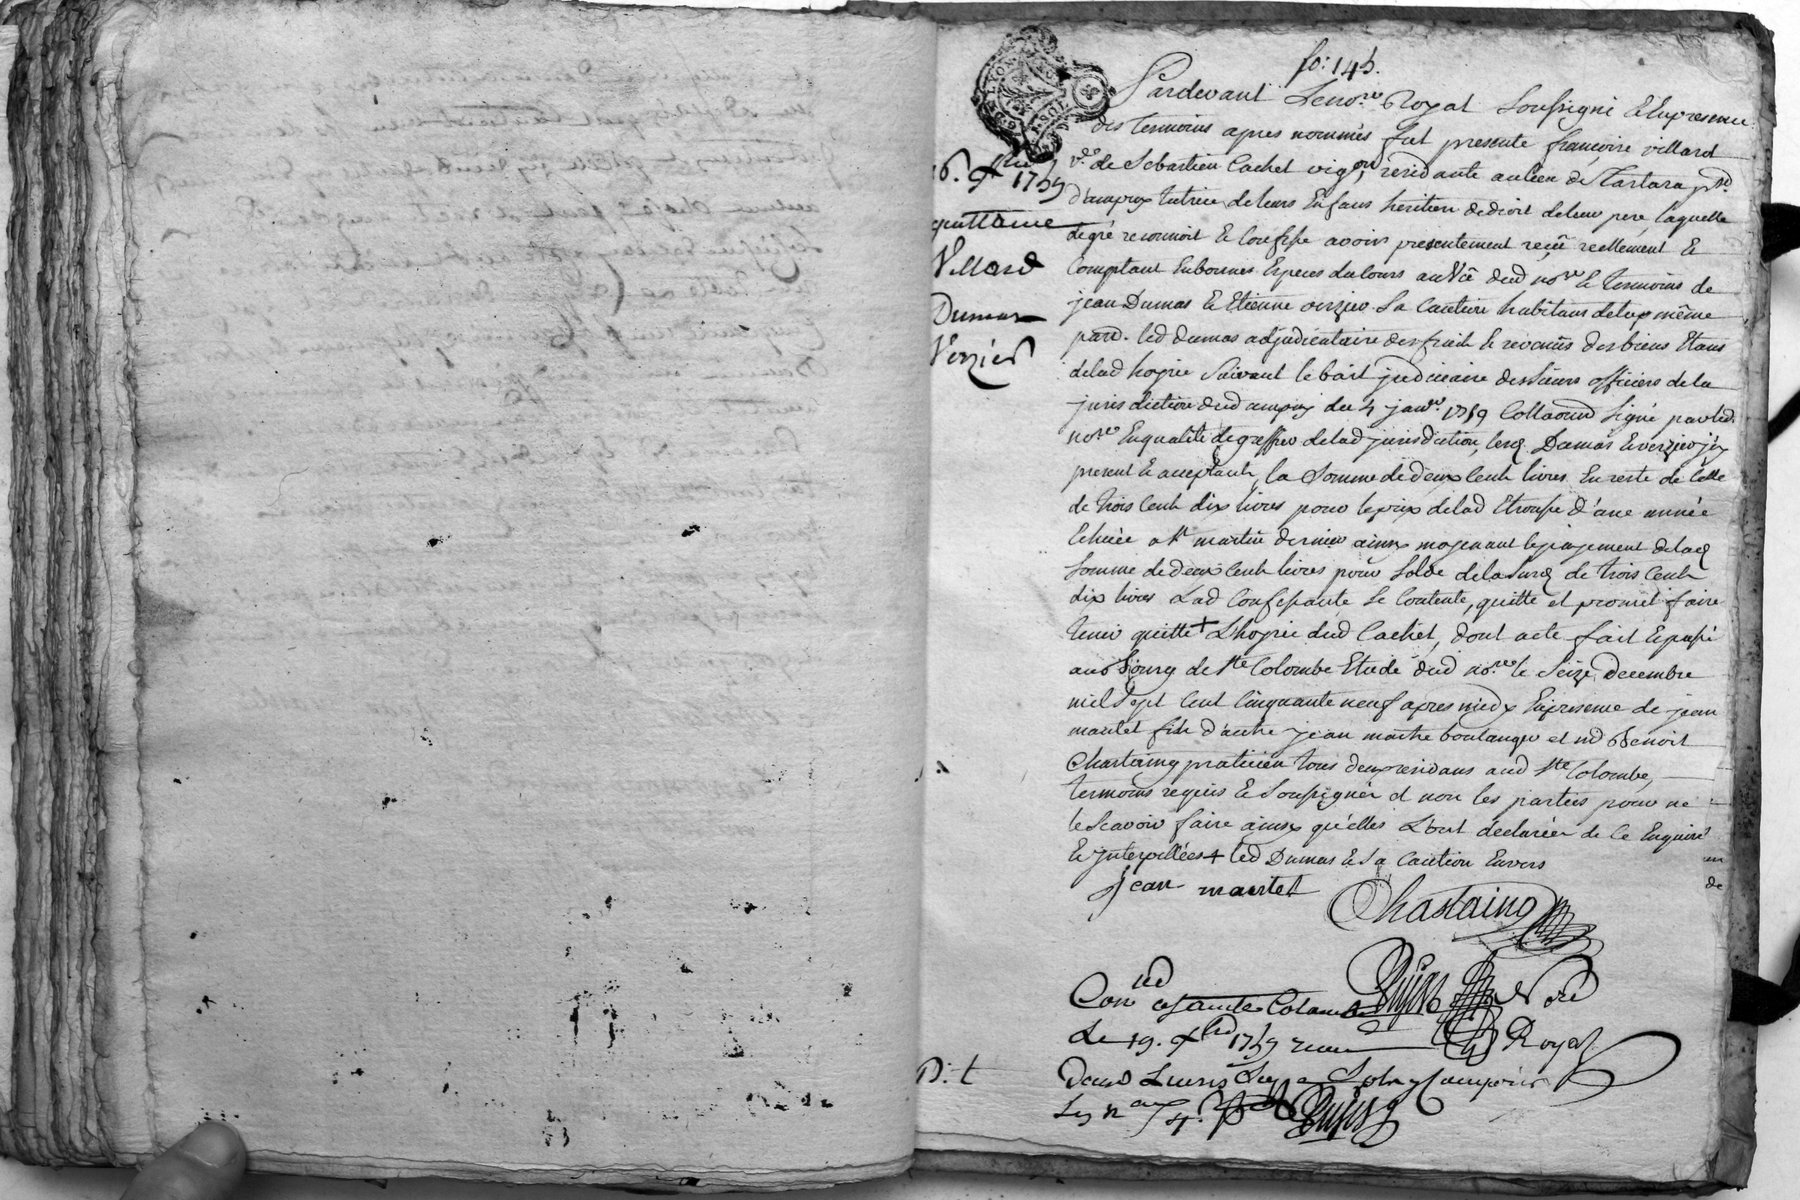 fo: 145.
Pardevant Le no.re Royal Soussigné & En presence
des temoins apres nommés fut presente françoise villard
v.e de Sebastien Cachet vig.on, residante au lieu de Tartara p.sse
d'ampuy tutrice de leurs Enfans heritiers de droit de leur pere, laquelle
de gré reconnoit & Confesse avoir presentement reçû reellement &
Comptant En bonnes Especes du Cours au Vû dud no.re & temoins de
jean Dumas & Etienne verzier Sa Caution habitans de lad même
parr. led dumas adjudicataire des fruits & revenûs des biens Etans
de lad hoyrie Suivant le bail judiciaire des Sieurs officiers de la
jurisdiction dud ampuy du 4 janv.r 1759 Collaoné Signé par led.
no.re En qualité de greffier de lad jurisdiction, lesq. Dumas & verzier jcy
present & acceptants, la Somme de deux Cent livres En reste de Celle
de trois Cent dix livres pour le prix de lad Etrousse d'une année
Echuëe a S.t martin dernier ainsy moyenant le payement de lad
Somme de deux Cent livres pour Solde de la Surd. de trois Cent
dix livres Lad Confessante Se Contente, quitte et promet faire
tenir quitte + L'hoyrie dud Cachet, dont acte fait & passé
au Bourg de S.te Colombe Etude dud no.re le Seize Decembre
mil Sept Cent Cinquante neuf apres midy En presence de jean
mantel fils d'autre jean maitre boulanger et m.d Benoit
Chastaing praticien tous deux residans aud S.te Colombe,
temoins requis & Soussignés et non les parties pour ne
le Scavoir faire ainsy qu'elles L'ont declarées de Ce Enquises
& jnterpellées + led Dumas & Sa Caution Envers
jean mantel
Chastaing
Dujas
No.re
Royal
Con.lé a Sainte Colombe
Le 19. X.bre 1759 reçu
16. X.bre 1759
quittance
Villard
Dumas
Verzier
Dujas